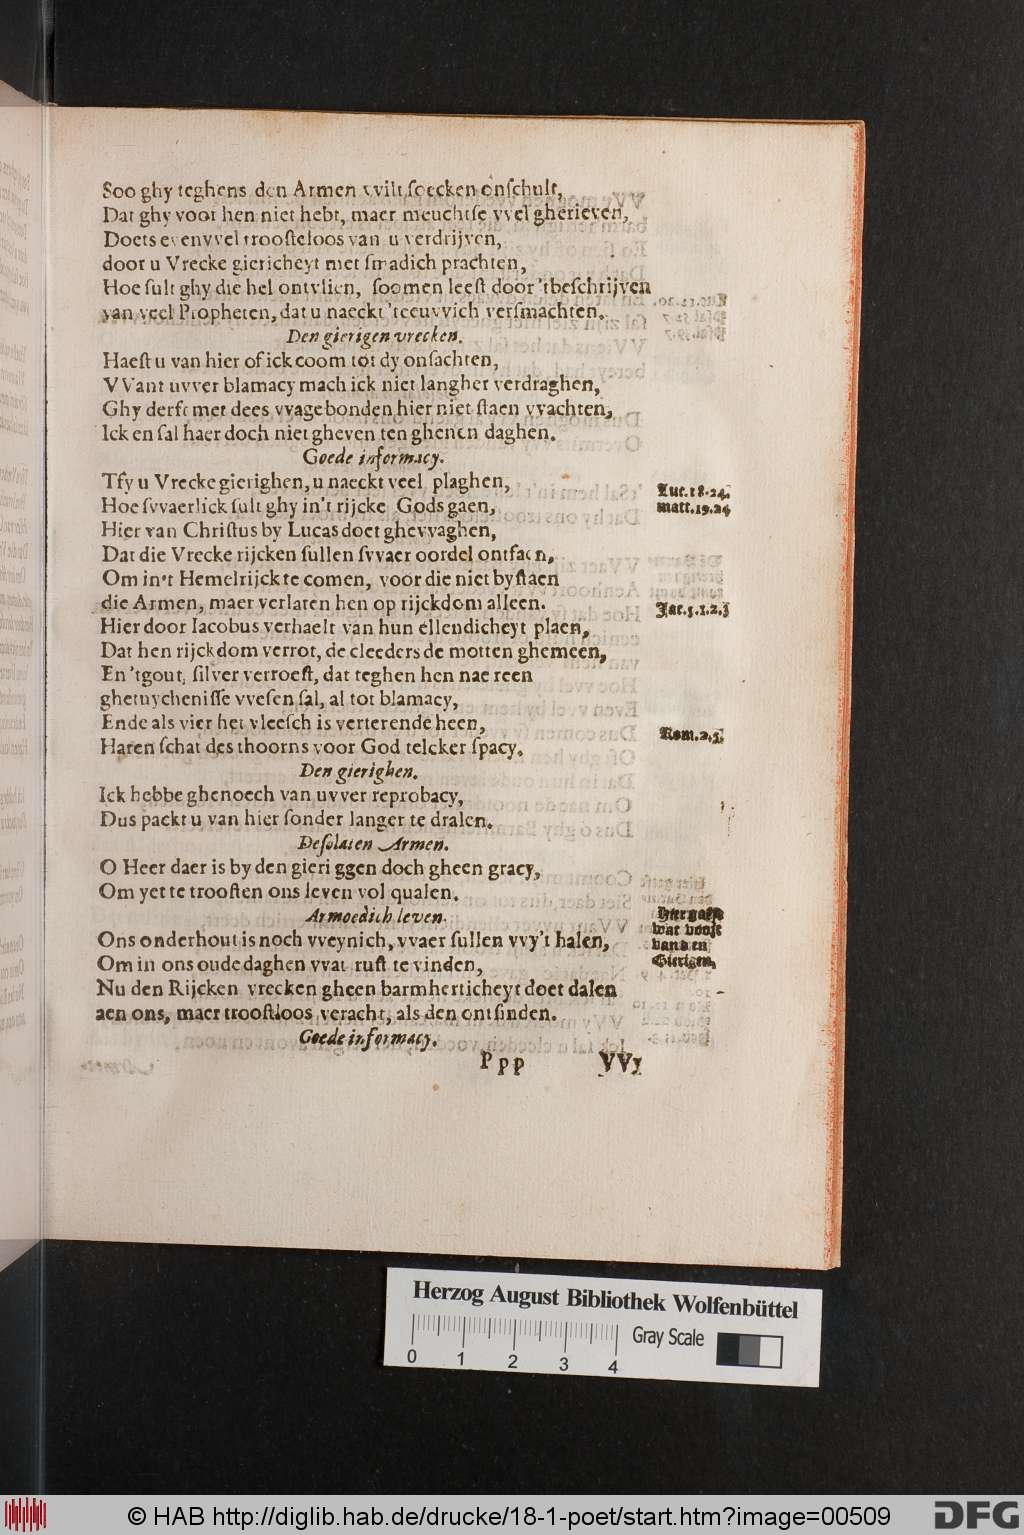 Soo ghy teghens den Armen vvilt soecken onschult,
Dat ghy voor hen niet hebt, maer meuchtse vvel gherieven,
Doets evenvvel troosteloos van u verdrijven,
door u Vrecke giericheyt met smadich prachten,
Hoe sult ghy die hel ontvlien, soomen leest door 'tbeschrijven
van veel Propheten, dat u naeckt 'teeuvvich versmachten.
Den gierigen vrecken.
Haest u van hier of ick coom tot dy onsachten,
VVant uvver blamacy mach ick niet langher verdraghen,
Ghy derft met dees vvagebonden hier niet staen vvachten,
Ick en sal haer doch niet gheven ten ghenen daghen.
Goede informacy.
Tfy u Vrecke gierighen, u naeckt veel plaghen,
Hoe svvaerlick sult ghy in't rijcke Gods gaen,
Luc. 18. 24.
matt. 19. 24
Hier van Christus by Lucas doet ghevvaghen,
Dat die Vrecke rijcken sullen svvaer oordel ontfaen,
Om in't Hemelrijck te comen, voor die niet bystaen
die Armen, maer verlaten hen op rijckdom alleen.
Jac. 5. 1. 2. 3
Hier door Iacobus verhaelt van hun ellendicheyt plaen,
Dat hen rijckdom verrot, de cleeders de motten ghemeen,
En 'tgout, silver verroest, dat teghen hen nae reen
ghetuychenisse vvesen sal, al tot blamacy,
Ende als vier het vleesch is verterende heen,
Haren schat des thoorns voor God telcker spacy.
Rom. 2. 5.
Den gierighen.
Ick hebbe ghenoech van uvver reprobacy,
Dus packt u van hier sonder langer te dralen.
Desolaten Armen.
O Heer daer is by den gieriggen doch gheen gracy,
Om yet te troosten ons leven vol qualen.
Armoedich leven.
Hier gaese
wat voost
vanden
Gierigen,
Ons onderhout is noch vveynich, vvaer sullen vvy't halen,
Om in ons oude daghen vvat rust te vinden,
Nu den Rijcken vrecken gheen barmherticheyt doet dalen
aen ons, maer troostloos veracht, als den ontsinden.
Goede informacy.
Ppp VVy
Herzog August Bibliothek Wolfenbüttel
Gray Scale
0 1 2 3 4
© HAB http://diglib.hab.de/drucke/18-1-poet/start.htm?image=00509
DFG